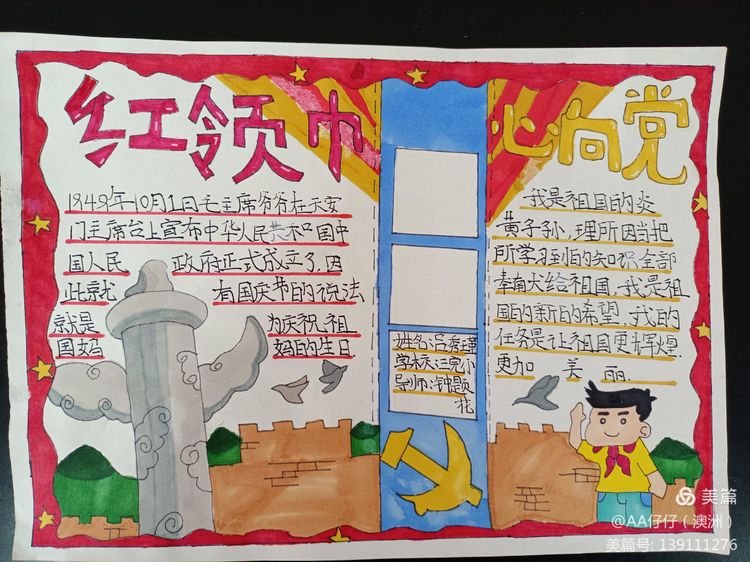 红领巾
心向党
1949年10月1日毛主席爷爷在天安
门主席台上宣布中华人民共和国中
国人民 政府正式成立了,因
此就 有国庆节的说法
就是 为庆祝祖
国妈 妈的生日.
姓名:吕
学校:三完小
导师:钟题
花
我是祖国的炎
黄子孙,理所因当把
所学习到的知识全部
奉献给祖国,我是祖
国的新的希望.我的
任务是让祖国更辉煌.
更加 美 丽.
美篇
@AA仔仔(澳洲)
美篇号: 139111276